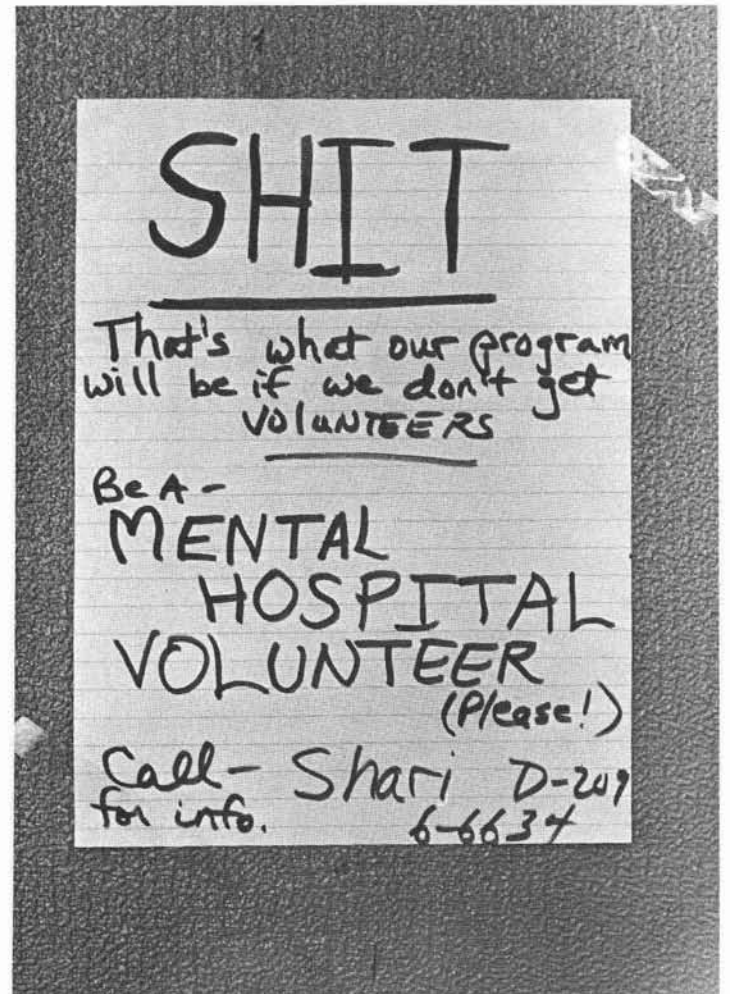 SHIT
That's what our program
will be if we don't get
VOLUNTEERS
Be A -
MENTAL
HOSPITAL
VOLUNTEER
(Please!)
Call - Shari D-209
for info. 6-6634